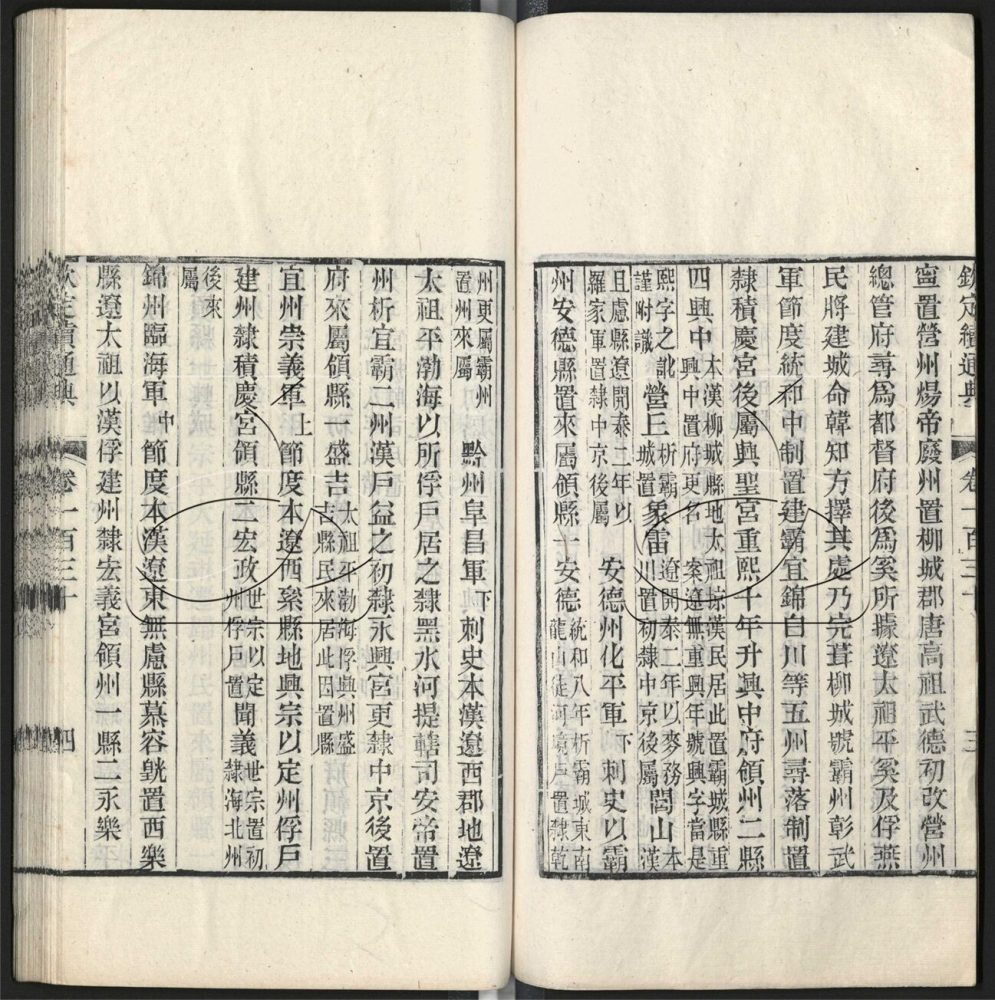 欽定續通典 卷一百三十 三
甯置營州煬帝廢州置柳城郡唐高祖武德初改營州
總管府尋爲都督府後爲奚所據遼太祖平奚及俘燕
民將建城命韓知方擇其處乃完葺柳城號霸州彰武
軍節度統和中制置建霸宜錦白川等五州尋落制置
隸積慶宮後屬興聖宮重熙十年升興中府領州二縣
四興中本漢柳城縣地太祖掠漢民居此置霸城縣重
興中置府更名 案遼無重興年號興字當是
熙字之訛
謹附識營丘析霸城置象雷遼開泰二年以麥務
川置初隸中京後屬閭山本漢
且慮縣遼開泰二年以
羅家軍置隸中京後屬 安德州化平軍下刺史以霸
州安德縣置來屬領縣一安德統和八年析霸城東南
龍山徒河境戶置隸乾
州更屬霸州
置州來屬 黔州阜昌軍下刺史本漢遼西郡地遼
太祖平渤海以所俘戶居之隸黑水河提轄司安帝置
州析宜霸二州漢戶益之初隸永興宮更隸中京後置
府來屬領縣一盛吉太祖平渤海俘興州盛
吉縣民來居此因置縣
宜州崇義軍上節度本遼西累縣地興宗以定州俘戶
建州隸積慶宮領縣二宏政世宗以定
州俘戶置聞義世宗置初
隸海北州
後來
屬
錦州臨海軍中節度本漢遼東無慮縣慕容皝置西樂
縣遼太祖以漢俘建州隸宏義宮領州一縣二永樂
欽定續通典 卷一百三十 四